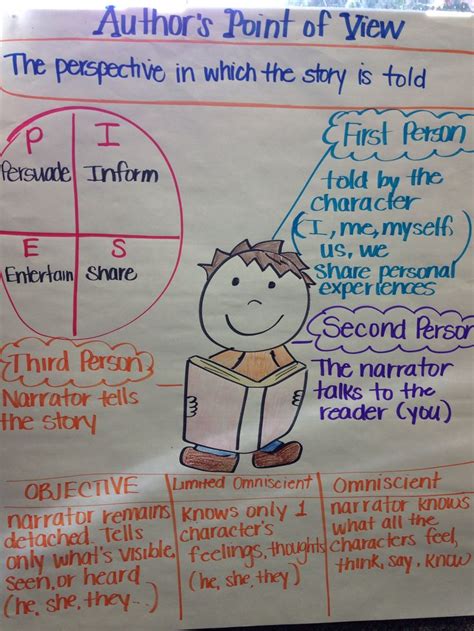 Author's Point of View
The perspective in which the story is told
P
Persuade
I
Inform
E
Entertain
S
Share
First Person
told by the
character
(I, me, myself,
us, we
share personal
experiences
Second Person
The narrator
talks to the
reader (you)
Third Person
Narrator tells
the story
OBJECTIVE
narrator remains
detached. Tells
only what's visible,
seen, or heard
(he, she, they...)
Limited Omniscient
Knows only 1
character's
feelings, thoughts
(he, she, they)
Omniscient
narrator knows
what all the
characters feel,
think, say, know